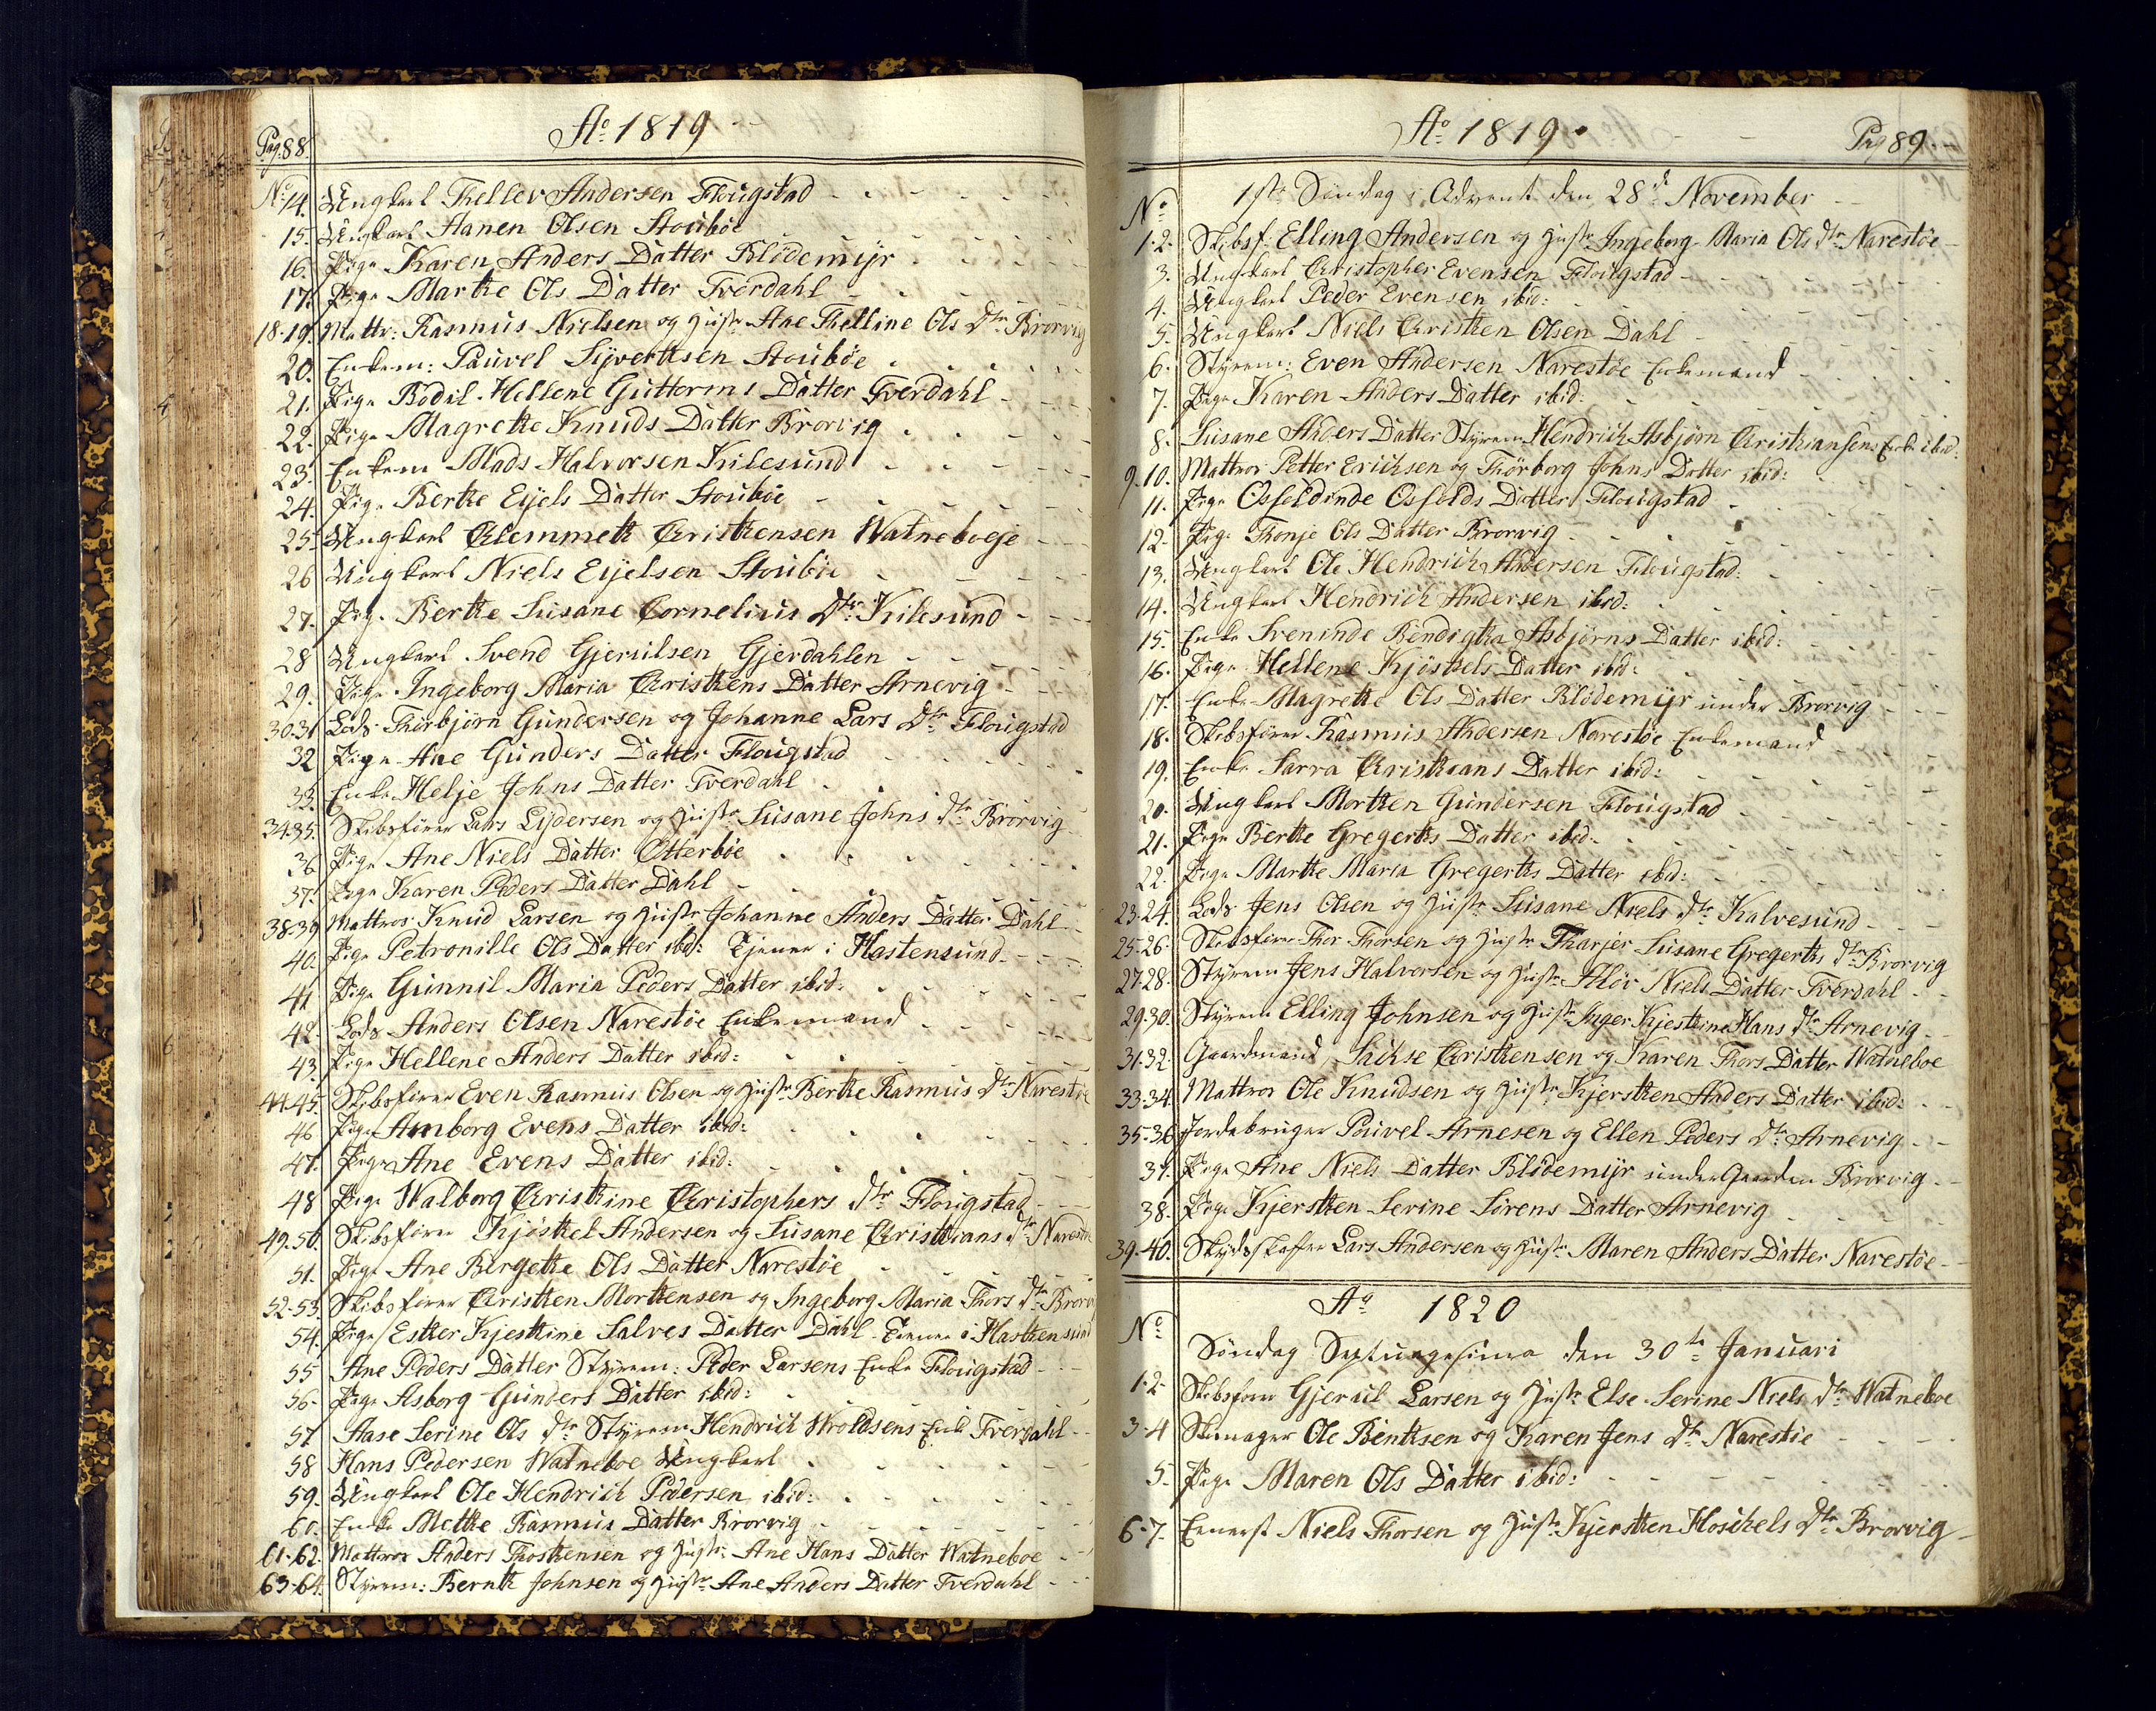 Pag: 88.
Ao 1819
No 14. Ungkarl Thellev Andersen Flougstad
15. Ungkarl Aanen Olsen Stouböe
16. Pige Karen Anders Datter Blödemÿr
17. Pige Marthe Ols Datter Tverdahl
18-19. Mattr: Rasmus Nielsen og Hustr Ane Thelline Ols Dtr Brorvig
20. Enkem: Pouvel Sÿvertsen Stouböe
21. Pige Bodil Hellene Guttorms Datter Tverdahl
22. Pige Magrethe Knuds Datter Brorvig
23. Enkem Mads Halvorsen Kilesund
24. Pige Berthe Eÿels Datter Stouböe
25. Ungkarl Clemmeth Cristhensen Watneboeje
26 Ungkarl Niels Eÿelsen Stouböe
27. Pige Berthe Susane Cornelius Dtr Kilesund
28 Ungkarl Svend Gjerulsen Gjerdahlen
29. Pige Ingeborg Maria Cristhens Datter Arnevig
30.31 Lods Thorbjörn Gundersen og Johanne Lars Dtr Flougstad
32 Pige Ane Gunders Datter Flougstad
33. Enke Helje Johns Datter Tverdahl
34.35. Skibsförer Lars Lÿdersen og Hustr Susane Johns dtr Brorvig
36 Pige Ane Niels Datter Otterböe
37. Pige Karen Peders Datter Dahl
38-39 Mattros Knud Larsen og Hustr Johanne Anders Datter Dahl
40. Pige Petronille Ols Datter ibd: Tjener i Hastensund
41 Pige Gunnil Maria Peders Datter ibid:
42. Lods Anders Olsen Narestöe Enkemand
43. Pige Hellene Anders Datter ibid:
44.45. Skibsförer Even Rasmus Olsen og Hustr Berthe Rasmus Dtr Narestöe
46 Pige Amborg Evens Datter ibid:
47. Pige Ane Evens Datter ibid:
48 Pige Walborg Cristhine Cristophers dtr Flougstad
49.50. Skibsförer Kjösthel Andersen og Susane Cristhians dtr Narestöe
51. Pige Ane Birgethe Ols Datter Narestöe
52-53. Skibsförer Cristhen Morthensen og Ingeborg Maria Thors dtr Brorvig
54. Pige Esther Kjesthine Salves Datter Dahl Tiener i Hasthensund
55 Ane Peders Datter Stÿrem: Peder Larsens Enke Flougstad
56. Pige Asborg Gunders Datter ibid:
57 Aase Serine Ols dtr Stÿrem Hendrich Wroldsens Enke Tverdahl
58 Hans Pedersen Watneboe Ungkarl
59. Ungkarl Ole Hendrich Pedersen ibid:
60. Enke Methe Rasmus Datter Brorvig
61-62. Mattros Anders Thosthensen og Hustr: Ane Hans Datter Watneboe
63-64. Stÿrem: Bernth Johnsen og Hustr Ane Anders Datter Tverdahl
Ao 1819
Pag 89
No 1ste Söndag i Advent den 28de November
1-2. Skibsf. Elling Andersen og Hustr Ingeborg Maria Ols dtr Narestöe
3. Ungkarl Cristopher Evensen Flougstad
4. Ungkarl Peder Evensen ibid:
5. Ungkarl Niels Cristhen Olsen Dahl
6. Stÿrem: Even Andersen Narestöe Enkemand
7. Pige Karen Anders Datter ibid:
8. Susane Anders Datter Stÿrem Hendrich Asbjörn Cristhiansens Enke ibid:
9.10. Mattros Petter Erichsen og Thörborg Johns Datter ibid:
11. Pige Osfoldinde Osfolds Datter Flougstad
12. Pige Thonje Ols Datter Brorvig
13. Ungkarl Ole Hendrich Andersen Flougstad:
14. Ungkarl Hendrich Andersen ibid:
15. Enke Sveninde Bendigtha Asbjörns Datter ibid:
16. Pige Hellene Kjösthels Datter ibid:
17. Enke Magrethe Ols Datter Blödemÿr under Brorvig
18. Skibsförer Rasmus Andersen Narestöe Enkemand
19. Enke Sarra Cristhians Datter ibid:
20. Ungkarl Morthen Gundersen Flougstad
21. Pige Berthe Gregerths Datter ibid:
22. Pige Marthe Maria Gregerths Datter ibid:
23-24. Lods Jens Olsen og Hustr Susane Niels dtr Kalvesund
25-26. Skibsförer Thor Thorsen og Hustr Tharjer Susane Gregerths dtr Brorvig
27-28. Stÿrem Jens Halvorsen og Hustr Alöv Niels Datter Tverdahl
29.30. Stÿrem Elling Johnsen og Hustr Inger Kjesthine Hans dtr Arnevig
31-32. Gaardmand Sichse Cristhensen og Karen Thors Datter Watneboe
33-34. Mattros Ole Knudsen og Hustr Kjersthen Anders Datter ibid:
35-36 Jordebruger Pouvel Arnesen og Ellen Peders dtr Arnevig
37. Pige Ane Niels Datter Blödemÿr under Gaarden Brorvig
38. Pige Kjersthen Serine Sörens Datter Arnevig
39-40. Skydsskaffer Lars Andersen og Hustr Maren Anders Datter Narestöe
Ao 1820
No
Söndag Septuagesima den 30te Januari
1-2. Skibsförer Gjeruil Larsen og Hustr Else Serine Niels dtr Watneboe
3-4 Ole Benthsen og Karen Jens dtr Narestöe
5. Pige Maren Ols Datter ibid:
6-7. Niels Thorsen og Hustr Kjersthen Hoschels Dtr Brorvig